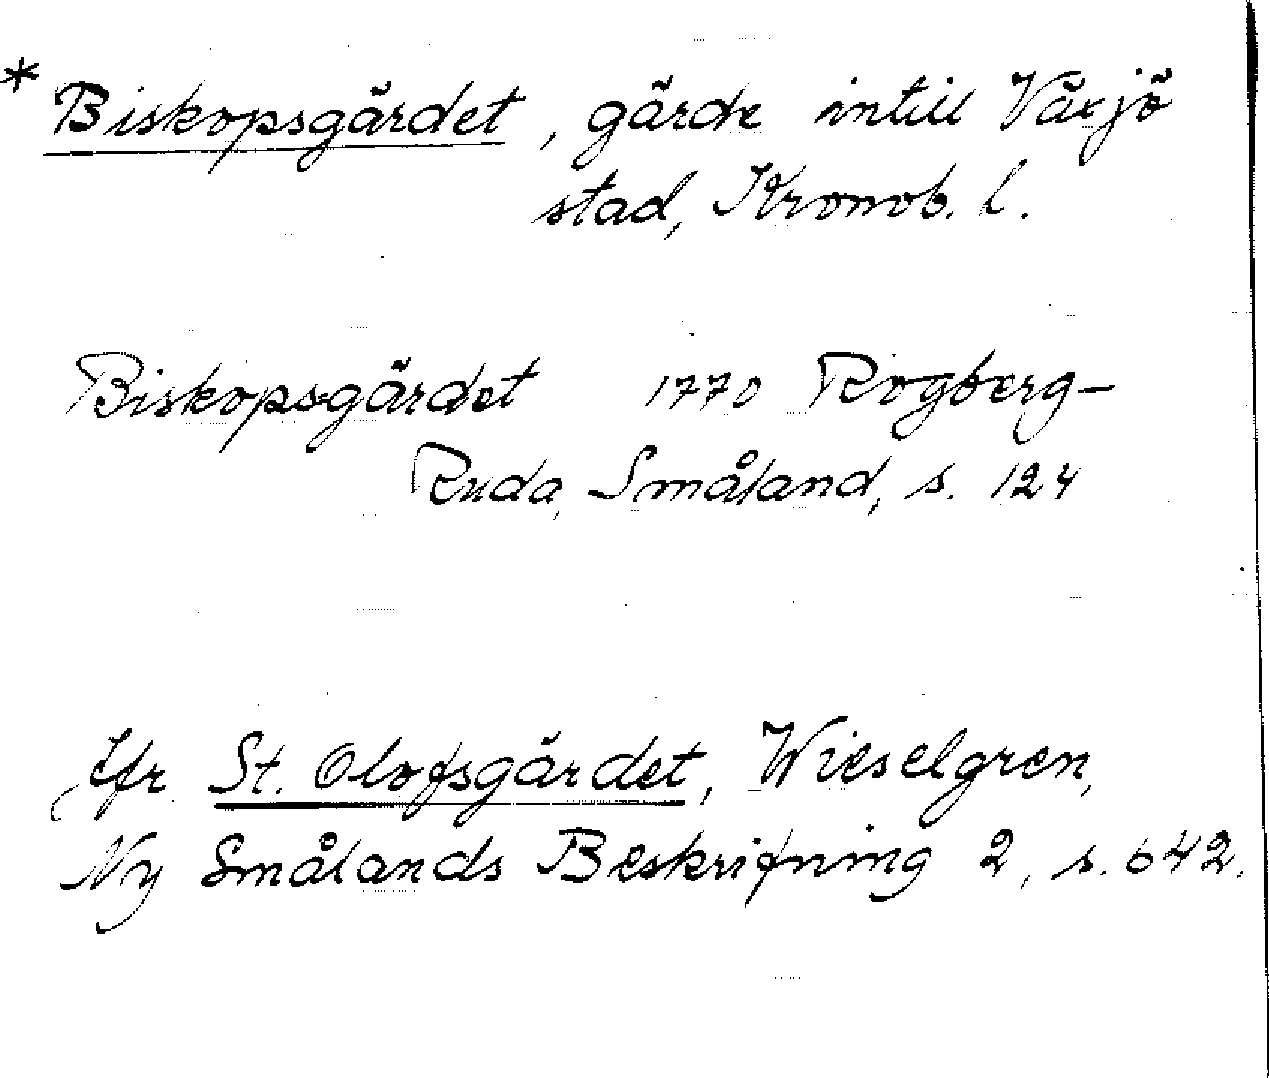 * Biskopsgärdet, gärde intill Växjö
stad, Kronob. l.
Biskopsgärdet 1770 Rogberg-
Ruda, Småland, s. 124
Jfr St. Olofsgärdet, Wieselgren,
Ny Smålands Beskrifning 2, s. 642.